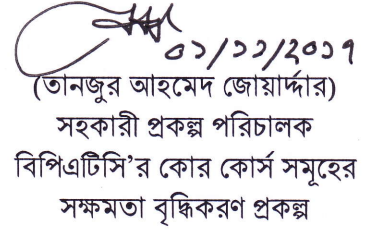 ০১/১১/২০১৭
(তানজুর আহমেদ জোয়ার্দ্দার)
সহকারী প্রকল্প পরিচালক
বিপিএটিসি’র কোর কোর্স সমূহের
সক্ষমতা বৃদ্ধিকরণ প্রকল্প